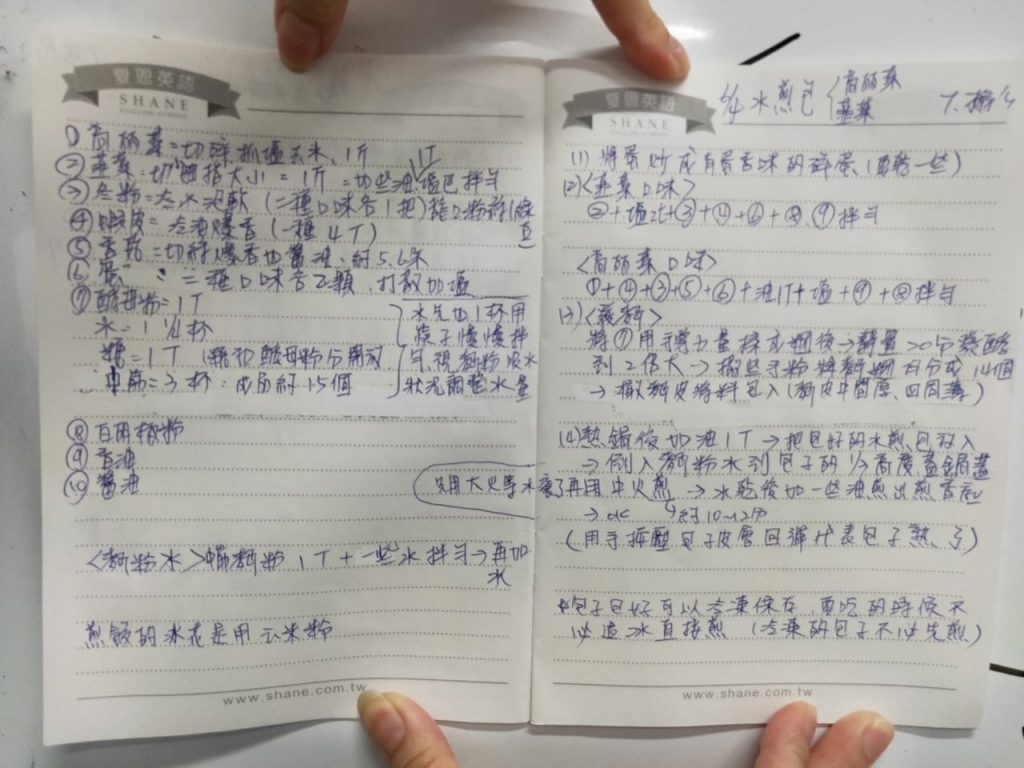 夏恩英語
SHANE
ENGLISH SCHOOL
① 高麗菜=切碎抓塩去水、1斤 、1T
② 韮菜:切 姆指大小=1斤=切些油、塩巴拌勻
③ 冬粉=冷水泡軟(二種口味各1把)
④ 蝦皮=冷油爆香(一種4T)
⑤ 香菇=切碎爆香加醬油:約5.6朵
⑥ 蛋 =二種口味各2顆、打散加塩
⑦ 酵母粉=1T
水=1 1/4杯
糖=1T(糖和酵母粉分開放
中筋=3杯:成品約15個
水先加1杯用
筷子慢慢拌
勻視麵粉吸水
狀況調整水量
⑧ 白胡椒粉
⑨ 香油
⑩ 醬油
<麵粉水>中筋麵粉1T+一些水拌勻→再加
水
煎餃的冰花是用玉米粉
www.shane.com.tw
夏恩英語
SHANE
ENGLISH SCHOOL
水煎包 高麗菜
韮菜
(1) 將蛋炒成有蛋香味的碎蛋(酉 一些)
(2)<韮菜口味>
②+塩 +③+④+⑥+⑧、⑨拌勻
<高麗菜口味>
①+④+③+⑤+⑥+油1T+塩+⑨+⑧拌勻
(3)<麵糰>
將⑦用 力量揉成糰後→靜置20分發酵
到2倍大→撒些手粉將麵糰 分成14個
→擀麵皮將料包入(麵皮中間厚、四周薄)
(4)熱鍋後加油1T→把包好的水煎包放入
→倒入麵粉水到包子的1/3高度蓋鍋蓋
先用大火等水滾了再用中火煎→水乾後加一些油煎出煎香底
→ok 約10~12分
(用手按壓包子皮會回彈代表包子熟了)
*包子包好可以冷凍保存、要吃的時候不
必退冰直接煎(冷凍的包子不必先煎)
www.shane.com.tw